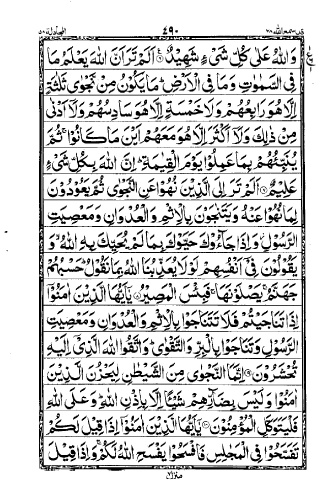 قد سمع الله ٢٨ ٤٩٠ المجادلة ٥٨
وَاللّٰهُ عَلٰى كُلِّ شَىْءٍ شَهِيْدٌ ۞ اَلَمْ تَرَ اَنَّ اللّٰهَ يَعْلَمُ مَا
فِى السَّمٰوٰتِ وَمَا فِى الْاَرْضِ ؕ مَا يَكُوْنُ مِنْ نَّجْوٰى ثَلٰثَةٍ
اِلَّا هُوَ رَابِعُهُمْ وَلَا خَمْسَةٍ اِلَّا هُوَ سَادِسُهُمْ وَلَاۤ اَدْنٰى
مِنْ ذٰلِكَ وَلَاۤ اَكْثَرَ اِلَّا هُوَ مَعَهُمْ اَيْنَ مَا كَانُوْا ۚ ثُمَّ
يُنَبِّئُهُمْ بِمَا عَمِلُوْا يَوْمَ الْقِيٰمَةِ ؕ اِنَّ اللّٰهَ بِكُلِّ شَىْءٍ
عَلِيْمٌ ۞ اَلَمْ تَرَ اِلَى الَّذِيْنَ نُهُوْا عَنِ النَّجْوٰى ثُمَّ يَعُوْدُوْنَ
لِمَا نُهُوْا عَنْهُ وَيَتَنٰجَوْنَ بِالْاِثْمِ وَالْعُدْوَانِ وَمَعْصِيَتِ
الرَّسُوْلِ ؗ وَاِذَا جَآءُوْكَ حَيَّوْكَ بِمَا لَمْ يُحَيِّكَ بِهِ اللّٰهُ ۙ وَ
يَقُوْلُوْنَ فِىْۤ اَنْفُسِهِمْ لَوْلَا يُعَذِّبُنَا اللّٰهُ بِمَا نَقُوْلُ ؕ حَسْبُهُمْ
جَهَنَّمُ ۚ يَصْلَوْنَهَا ۚ فَبِئْسَ الْمَصِيْرُ ۞ يٰۤاَيُّهَا الَّذِيْنَ اٰمَنُوْۤا
اِذَا تَنَاجَيْتُمْ فَلَا تَتَنَاجَوْا بِالْاِثْمِ وَالْعُدْوَانِ وَمَعْصِيَتِ
الرَّسُوْلِ وَتَنَاجَوْا بِالْبِرِّ وَالتَّقْوٰى ؕ وَاتَّقُوا اللّٰهَ الَّذِىْۤ اِلَيْهِ
تُحْشَرُوْنَ ۞ اِنَّمَا النَّجْوٰى مِنَ الشَّيْطٰنِ لِيَحْزُنَ الَّذِيْنَ
اٰمَنُوْا وَلَيْسَ بِضَآرِّهِمْ شَيْئًا اِلَّا بِاِذْنِ اللّٰهِ ؕ وَعَلَى اللّٰهِ
فَلْيَتَوَكَّلِ الْمُؤْمِنُوْنَ ۞ يٰۤاَيُّهَا الَّذِيْنَ اٰمَنُوْۤا اِذَا قِيْلَ لَكُمْ
تَفَسَّحُوْا فِى الْمَجٰلِسِ فَافْسَحُوْا يَفْسَحِ اللّٰهُ لَكُمْ ۚ وَاِذَا قِيْلَ